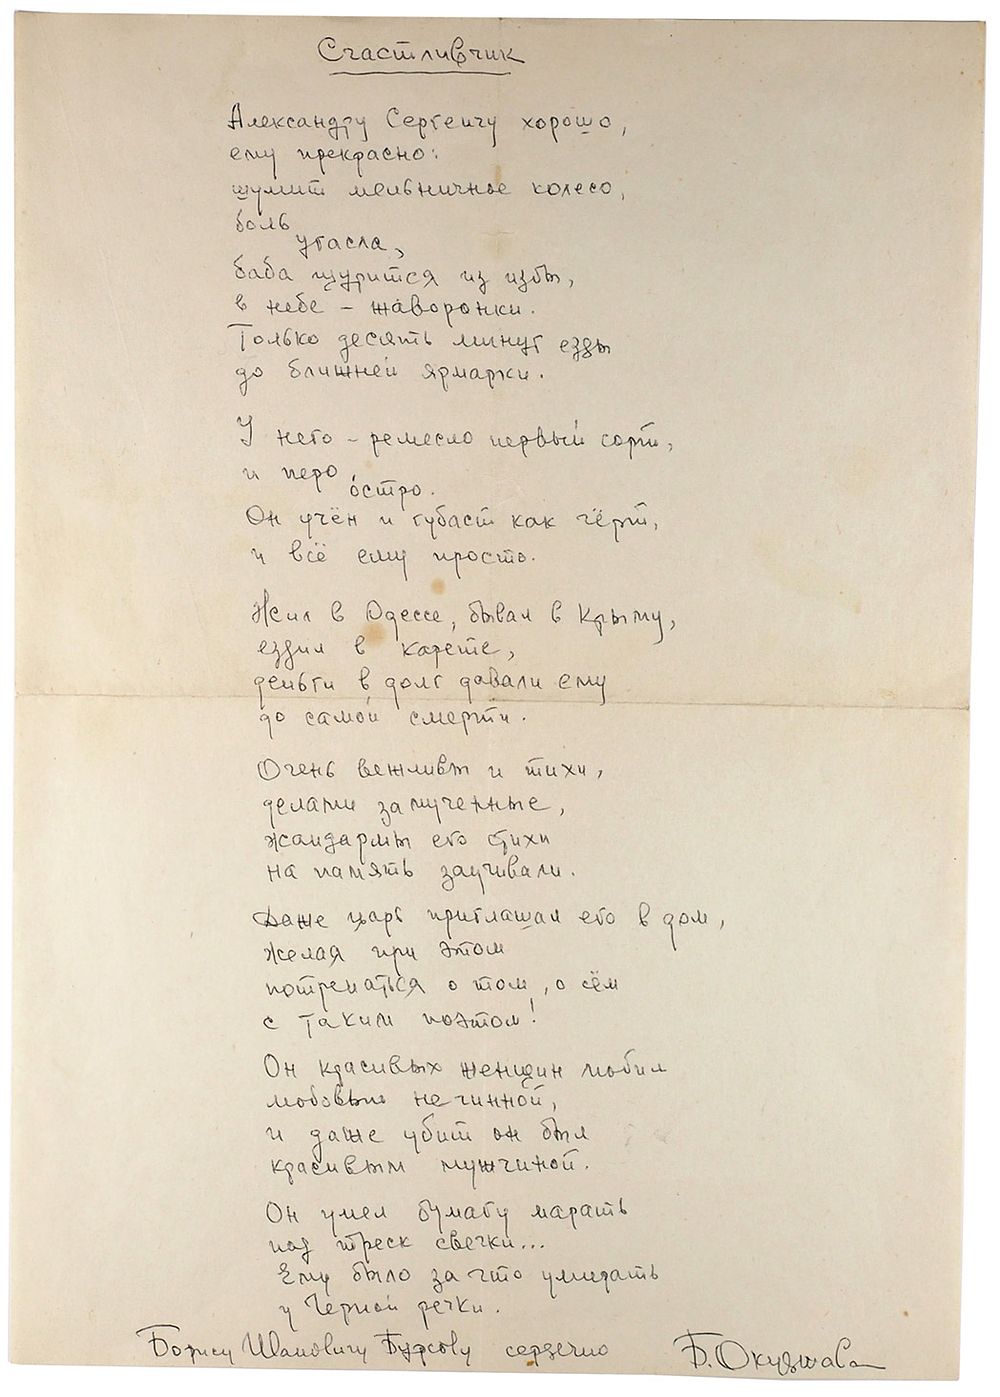 Счастливчик
Александру Сергеичу хорошо,
ему прекрасно:
шумит мельничное колесо,
боль
угасла,
баба щурится из избы,
в небе – жаворонки.
Только десять минут езды
до ближней ярмарки.
У него – ремесло первый сорт,
и перо
остро.
Он учён и губаст как чёрт,
и всё ему просто.
Жил в Одессе, бывал в Крыму,
ездил в карете,
деньги в долг давали ему
до самой смерти.
Очень вежливы и тихи,
делами замученные,
жандармы его стихи
на память заучивали.
Даже царь приглашал его в дом,
желая при этом
потрепаться о том, о сём
с таким поэтом!
Он красивых женщин любил
любовью не чинной,
и даже убит он был
красивым мужчиной.
Он умел бумагу марать
под треск свечки...
Ему было за что умирать
у Черной речки.
Борису Ивановичу Бурсову сердечно Б. Окуджава